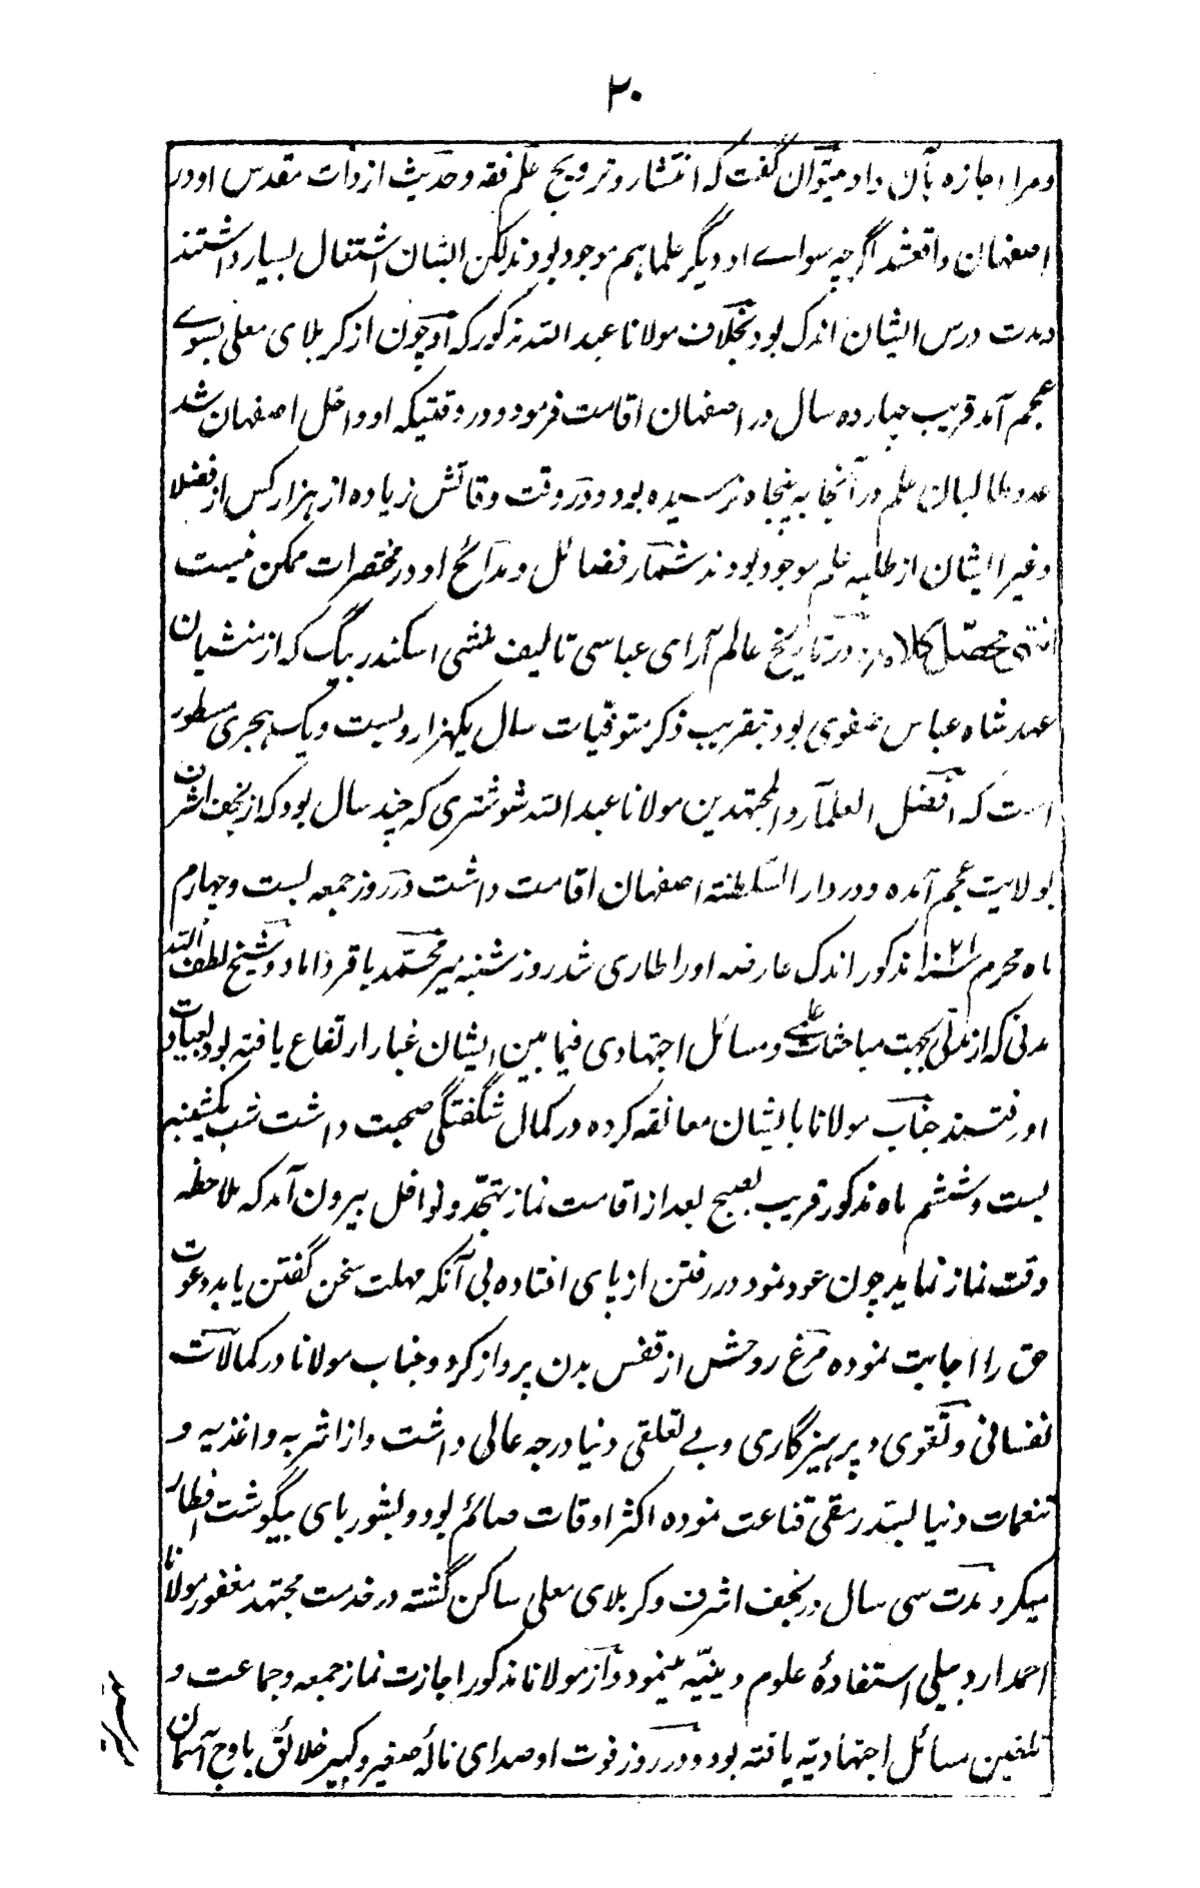 ۲۰
ومرا اجازه بآن داد میتوان گفت که انتشار و ترویج علم فقه و حدیث از ذات مقدس او در
اصفهان واقع شد اگرچه سواے او دیگر علما هم موجود بودند لکن ایشان اشتغال بسیار داشتند
ومدت درس ایشان اندک بود بخلاف مولانا عبد الله مذکور که او چون از کربلای معلی بسوے
عجم آمد قریب چهارده سال در اصفهان اقامت فرمود و در وقتیکه او داخل اصفهان شد
عدد طالبان علم در آنجا به پنجاه نرسیده بود و در وقت وفاتش زیاده از هزار کس از فضلا
وغیر ایشان از طلبه علم موجود بودند شمار فضائل و مدائح او در مختصرات ممکن نیست
انتهی محصّل کلامه و در تاریخ عالم آرای عباسی تالیف منشی اسکندر بیگ که از منشیان
عهد شاه عباس صفوی بود بتقریب ذکر متوفیات سال یکهزار و بست و یک هجری مسطور
است که افضل العلمآء والمجتهدین مولانا عبد الله شوشتری که چند سال بود که از نجف اشرف
بولایت عجم آمده و در دار السّلطنة اصفهان اقامت داشت در روز جمعه بست و چهارم
ماه محرم سنه ۱۰۲۱ مذکور اندک عارضه او را طاری شد روز شنبه میر محمّد باقر داماد و شیخ لطف الله
مدنی که از مدتی بجهت مباحثات علمی و مسائل اجتهادی فیما بین ایشان غبار ارتفاع یافته بود بعیادت
او رفتند جناب مولانا با ایشان معانقه کرده در کمال شگفتگی صحبت داشت شب یکشنبه
بست و ششم ماه مذکور قریب بصبح بعد از اقامت نماز تهجّد و نوافل بیرون آمد که ملاحظه
وقت نماز نماید چون عود نمود در رفتن از پای افتاده بی آنکه مهلت سخن گفتن یابد دعوت
حق را اجابت نموده مرغ روحش از قفس بدن پرواز کرد و جناب مولانا در کمالات
نفسانی و تقوی و پرهیزگاری و بے تعلقی دنیا درجه عالی داشت و از اشربه و اغذیه و
تنعمات دنیا بسدّ رمقی قناعت نموده اکثر اوقات صائم بود و بشوربای بیگوشت افطار
میکرد و مدت سی سال در نجف اشرف و کربلای معلی ساکن گشته در خدمت مجتهد مغفور مولانا
احمد اردبیلی استفادۀ علوم دینیّه مینمود و از مولانا مذکور اجازت نماز جمعه و جماعت و
تلقین مسائل اجتهادیّه یافته بود و در روز فوت او صدای نالۀ صغیر و کبیر خلائق باوج آسمان